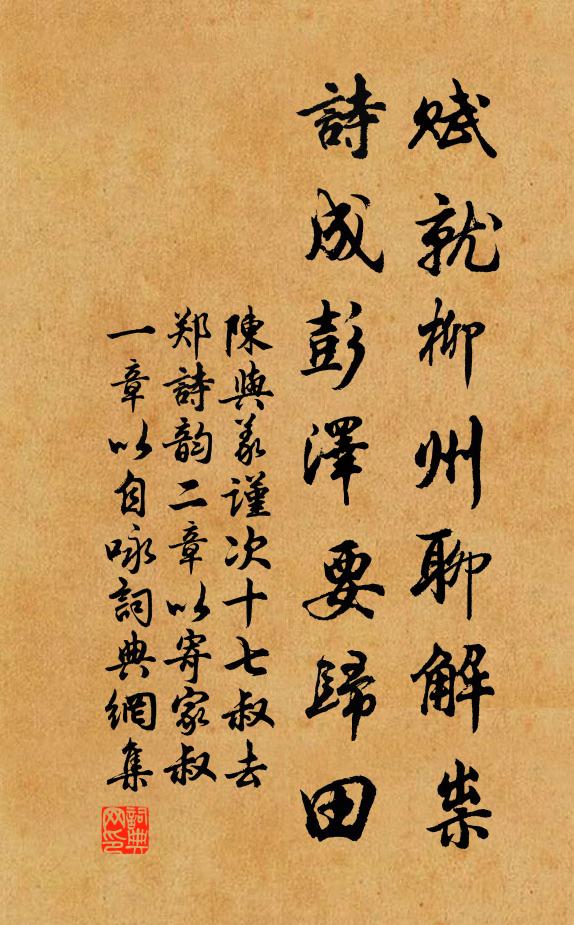 賦就柳州聊解祟
詩成彭澤要歸田
陳與義謹次十七叔去
郑詩韵二章以寄家叔
一章以自咏詞典網集
詞典网印